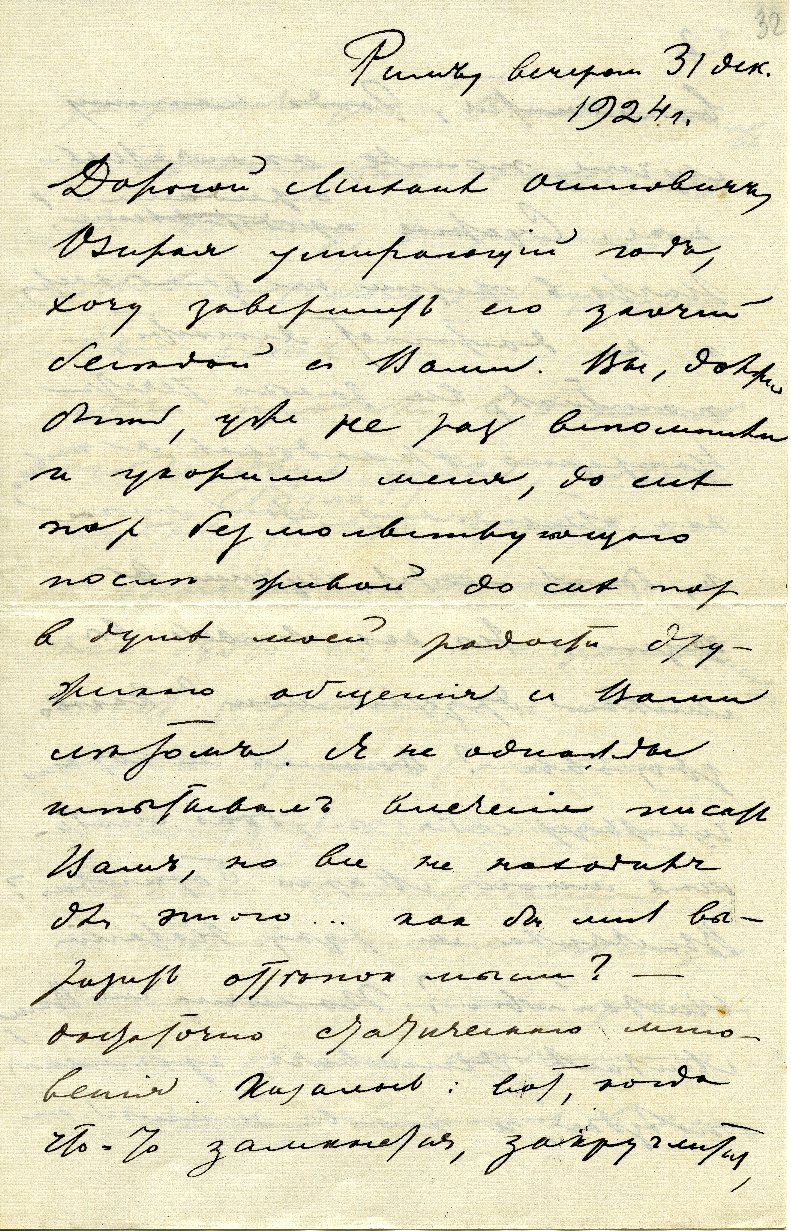 32
Римъ, вечеромъ 31 дек.
1924 г.
Дорогой Михаилъ Осиповичъ,
Озирая умирающій годъ,
хочу завершить его заочной
беседой с Вами. Вы, должно
быть, уже не раз вспомнили
и укорили меня, до сихъ
пор безмолвствующего
после живой до сих пор
в душѣ моей радости дру-
жнаго общенія с Вами
лѣтомъ. Я не однажды
испытывалъ влеченіе писать
Вамъ, но все не находилъ
для этого ... как бы мнѣ вы-
разить оттѣнок мысли? —
достаточно статическаго мгно-
венія. Казалось: вот, когда
что-то замкнется, закруглится,